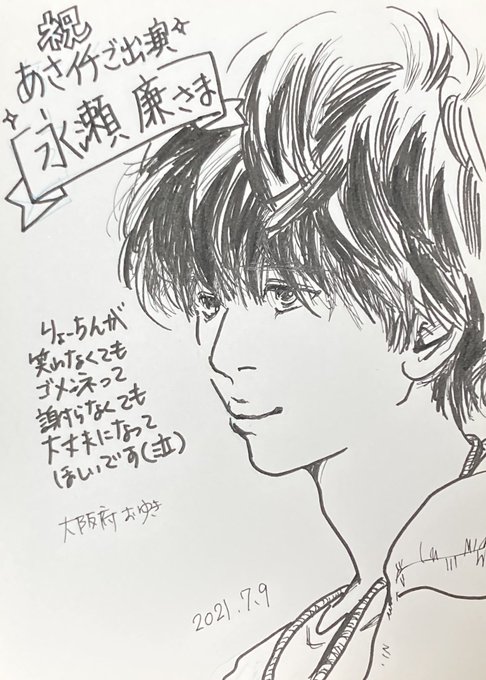 祝
あさイチご出演
永瀬廉さま
りょーちんが
笑わなくても
ゴメンネって
謝らなくても
大丈夫になって
ほしいです(泣)
大阪府 おゆき
2021.7.9